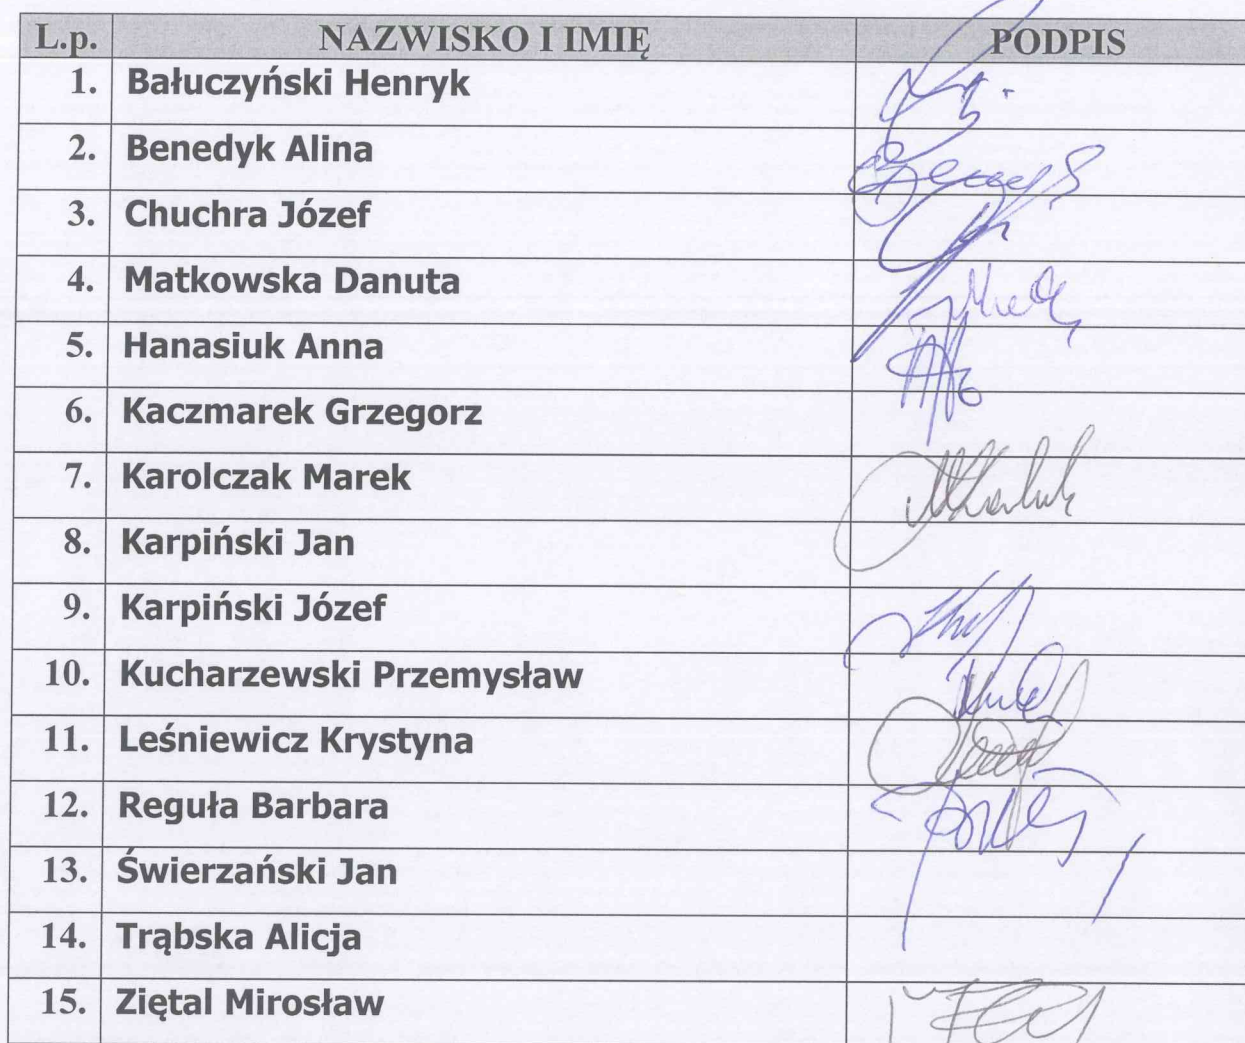 L.p. NAZWISKO I IMIĘ PODPIS
1. Bałuczyński Henryk
2. Benedyk Alina
3. Chuchra Józef
4. Matkowska Danuta
5. Hanasiuk Anna
6. Kaczmarek Grzegorz
7. Karolczak Marek
8. Karpiński Jan
9. Karpiński Józef
10. Kucharzewski Przemysław
11. Leśniewicz Krystyna
12. Reguła Barbara
13. Świerzański Jan
14. Trąbska Alicja
15. Ziętal Mirosław